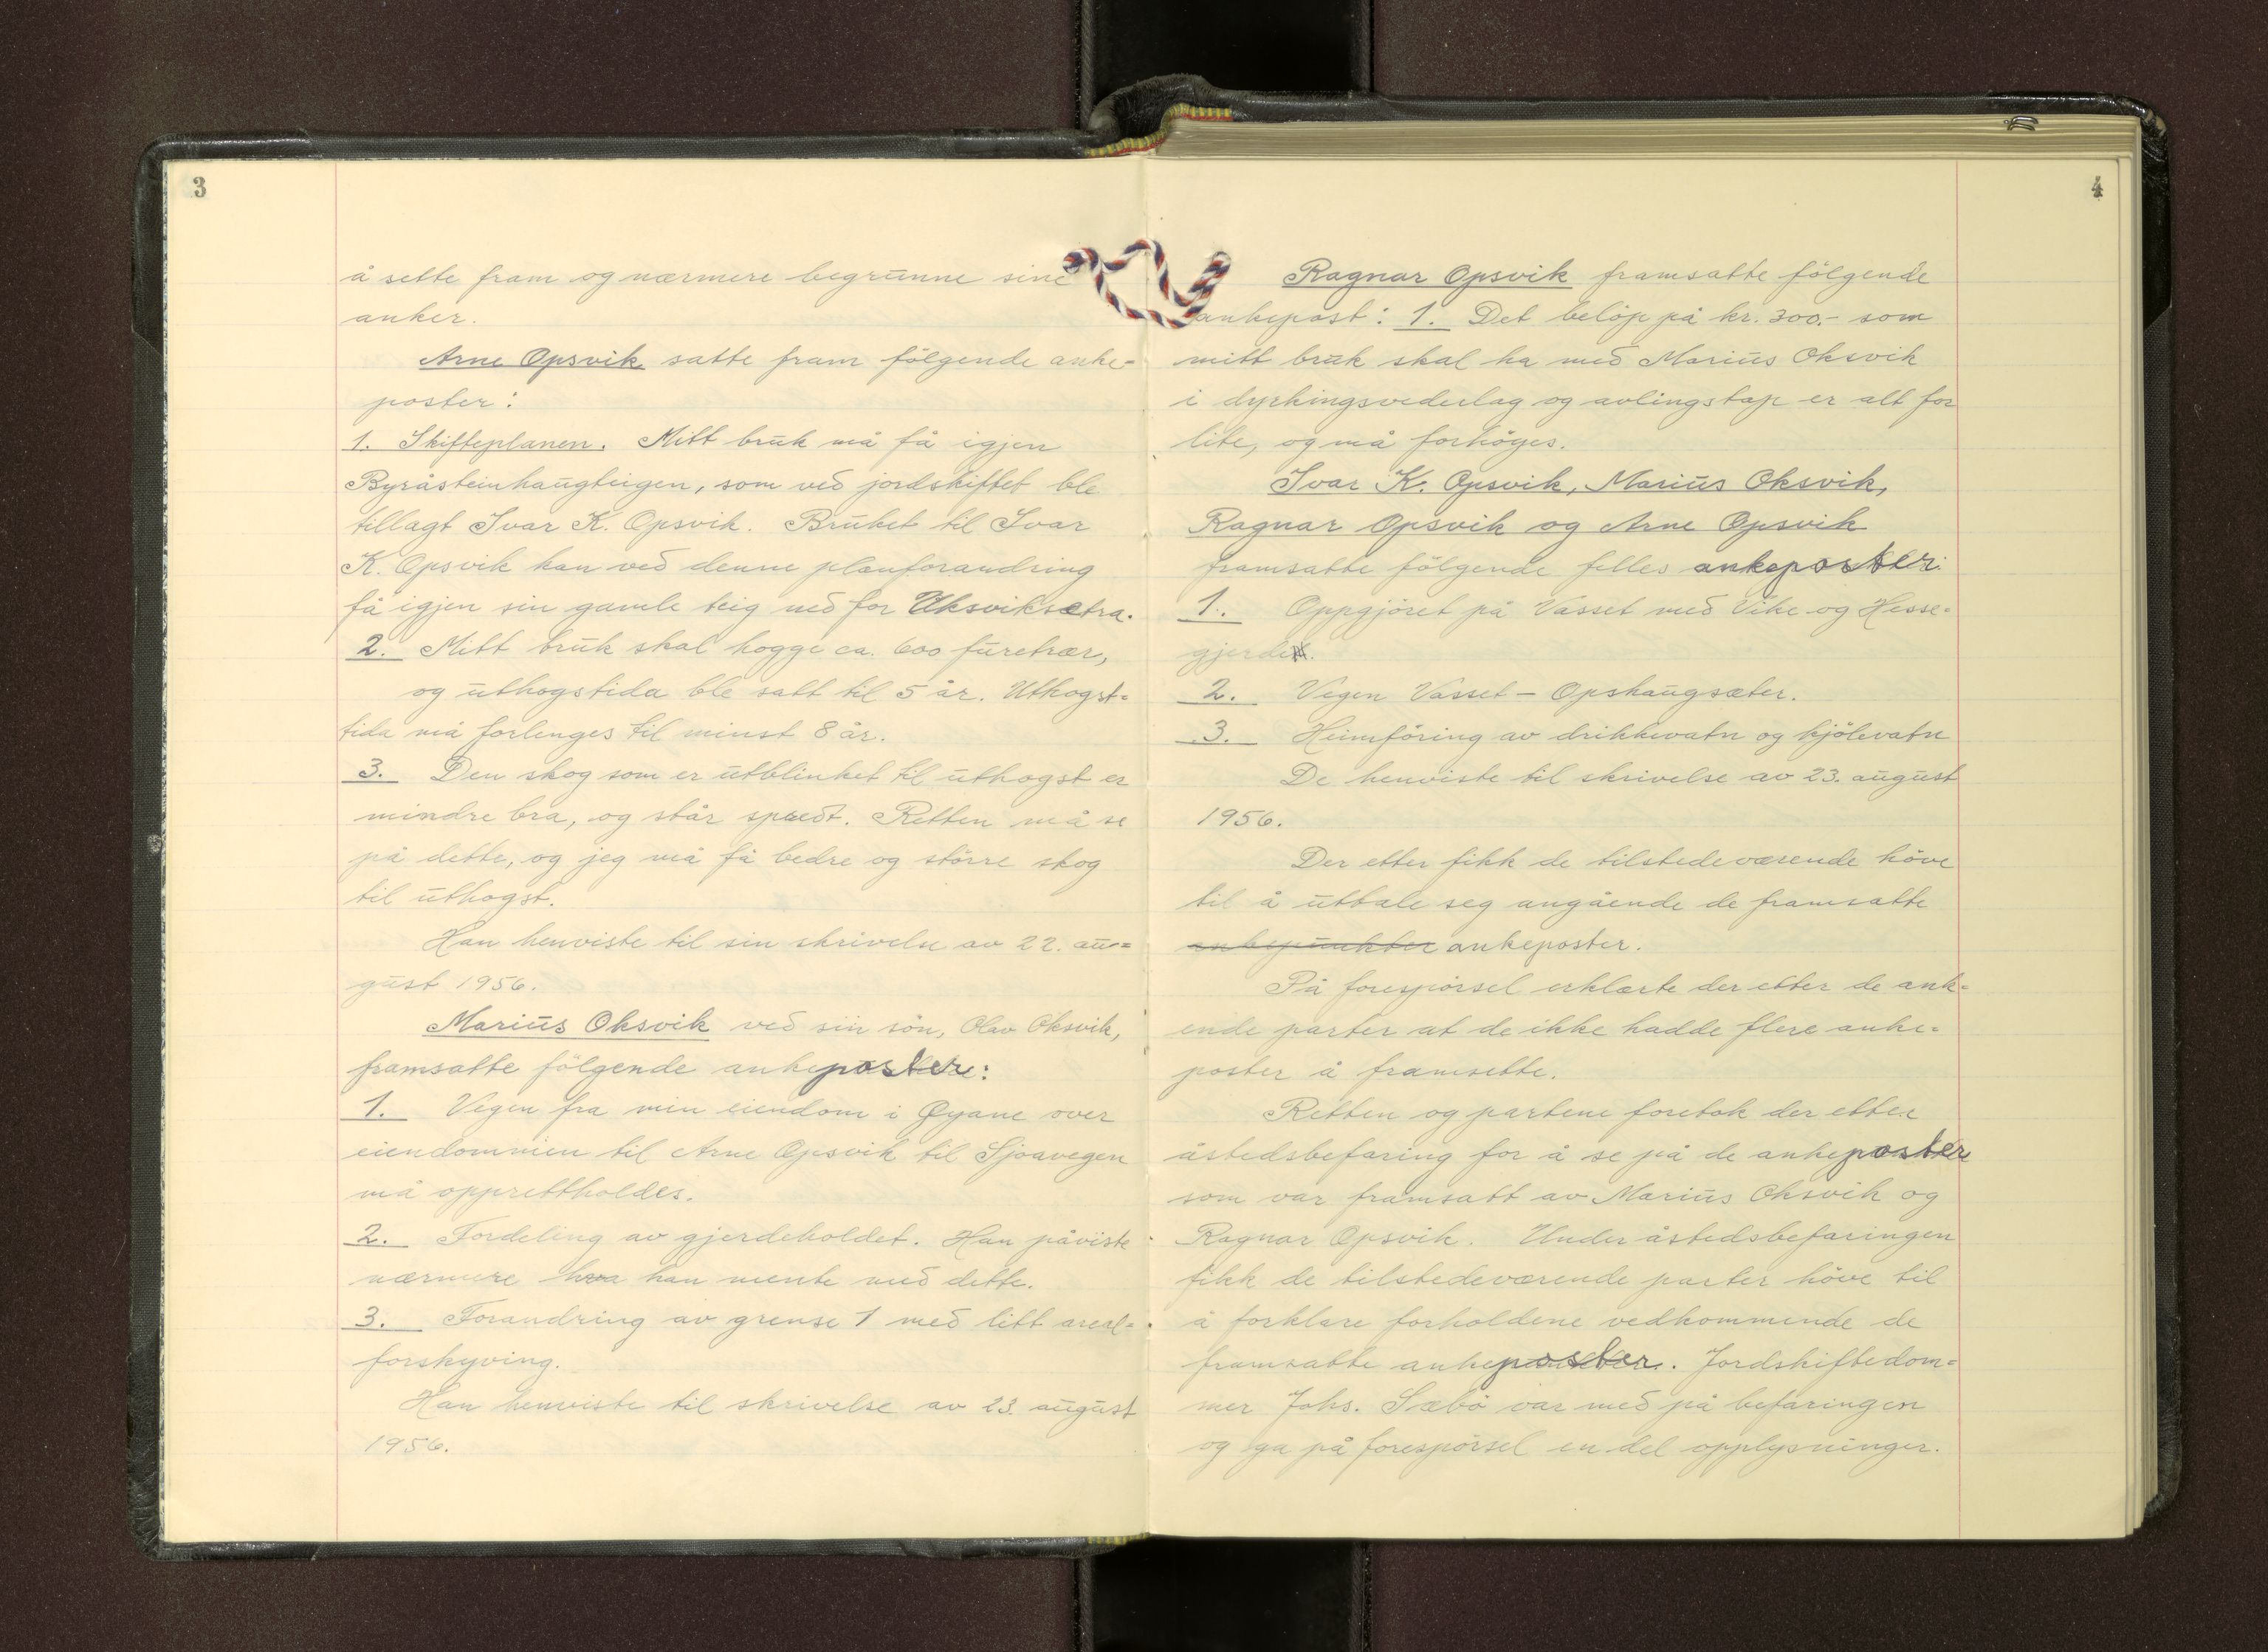 3
å sette fram og nærmere begrunne sine
anker.
Arne Opsvik satte fram følgende anke-
poster:
1. Skifteplanen. Mitt bruk må få igjen
Byråsteinhaugteigen, som ved jordskiftet ble
tillagt Ivar K. Opsvik. Bruket til Ivar
K. Opsvik kan ved denne planforandring
få igjen sin gamle teig ned for Uksviksætra.
2. Mitt bruk skal hogge ca. 600 furetrær,
og uthogstida ble satt til 5 år. Uthogst-
tida må forlenges til minst 8 år.
3. Den skog som er utblinket til uthogst er
mindre bra, og står spredt. Retten må se
på dette, og jeg må få bedre og större skog
til uthogst.
Han henviste til sin skrivelse av 22. au-
gust 1956.
Marius Oksvik ved sin sön, Olav Oksvik,
framsatte fölgende ankeposter:
1. Vegen fra min eiendom i Øyane over
eiendommen til Arne Opsvik til Sjoavegen
må opprettholdes.
2. Fordeling av gjerdeholdet. Han påviste
nærmere hva han mente med dette.
3. Forandring av grense 1 med litt areal-
forskyving.
Han henviste til skrivelse av 23. august
1956.
4
Ragnar Opsvik framsatte fölgende
ankepost: 1. Det belöp på kr. 300.- som
mitt bruk skal ha med Marius Oksvik
i dyrkingsvederlag og avlingstap er alt for
lite, og må forhöyes.
Ivar K. Opsvik, Marius Oksvik,
Ragnar Opsvik og Arne Opsvik
framsatte fölgende felles ankeposter:
1. Oppgjöret på Vasset med Vike og Hesse-
gjerdet.
2. Vegen Vasset - Opshaugsæter.
3. Heimföring av drikkevatn og kjölevatn
De henviste til skrivelse av 23. august
1956.
Der etter fikk de tilstedeværende höve
til å uttale seg angående de framsatte
ankepunkter ankeposter.
På forespörsel erklærte der etter de ank-
ende parter at de ikke hadde flere anke-
poster å framsette.
Retten og partene foretok der etter
åstedsbefaring for å se på de ankeposter
som var framsatt av Marius Oksvik og
Ragnar Opsvik. Under åstedsbefaringen
fikk de tilstedeværende parter höve til
å forklare forholdene vedkommende de
framsatte ankeposter. Jordskiftedom-
mer Johs. Sæbö var med på befaringen
og ga på forespörsel en del opplysninger.